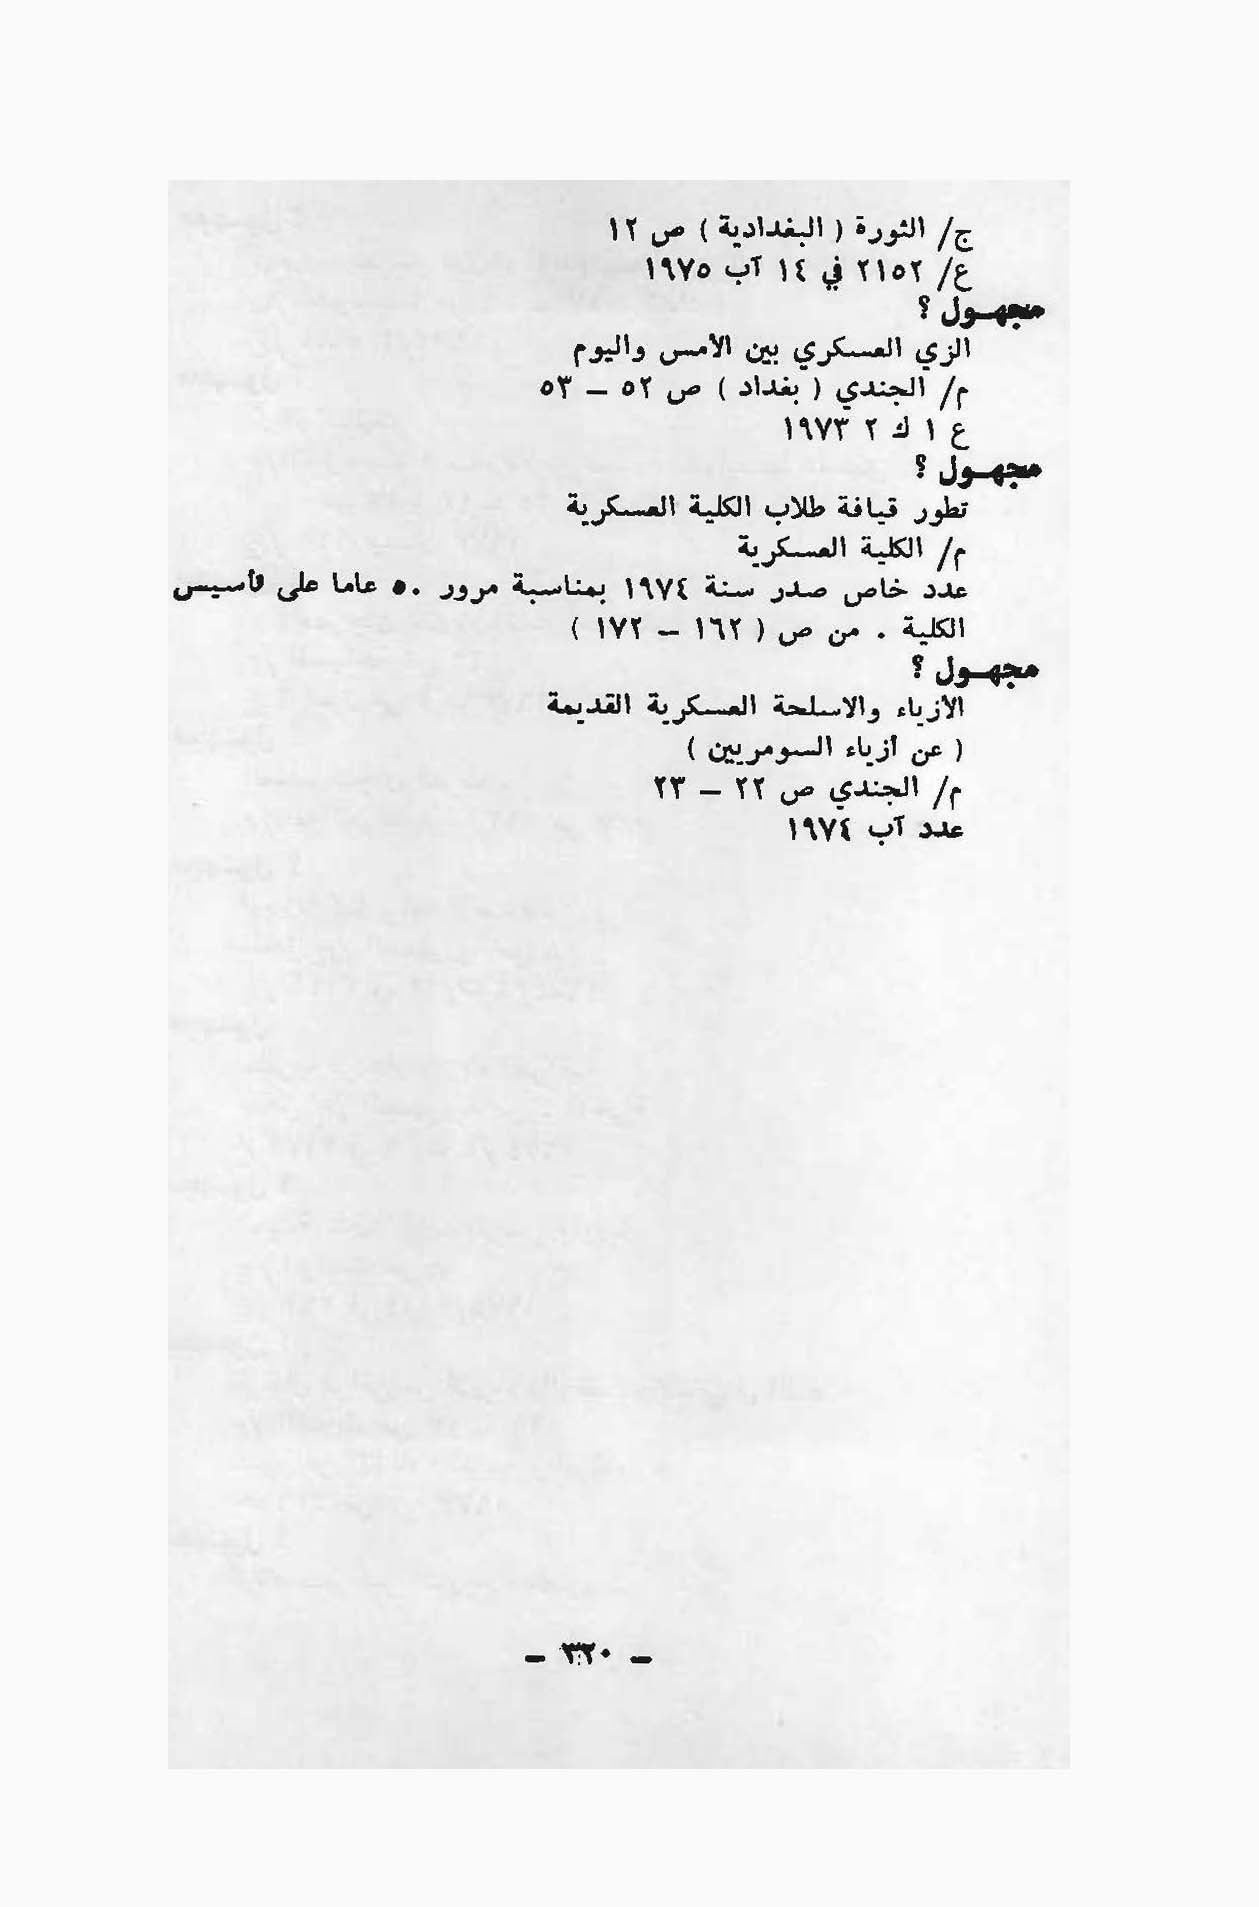 ج/ الثورة ( البغدادية ) ص ١٢
ع/ ٢١٥٢ في ١٤ آب ١٩٧٥
مجهـول ؟
الزي العسكري بين الأمس واليوم
م/ الجندي ( بغداد ) ص ٥٢ – ٥٣
ع ١ ك ٢ ١٩٧٣
مجهـول ؟
تطور قيافة طلاب الكلية العسكرية
م/ الكلية العسكرية
عدد خاص صدر سنة ١٩٧٤ بمناسبة مرور ٥٠ عاما على تأسيس
الكلية . من ص ( ١٦٢ – ١٧٢ )
مجهـول ؟
الأزياء والاسلحة العسكرية القديمة
( عن أزياء السومريين )
م/ الجندي ص ٢٢ – ٢٣
عدد آب ١٩٧٤
– ٣٢٠ –